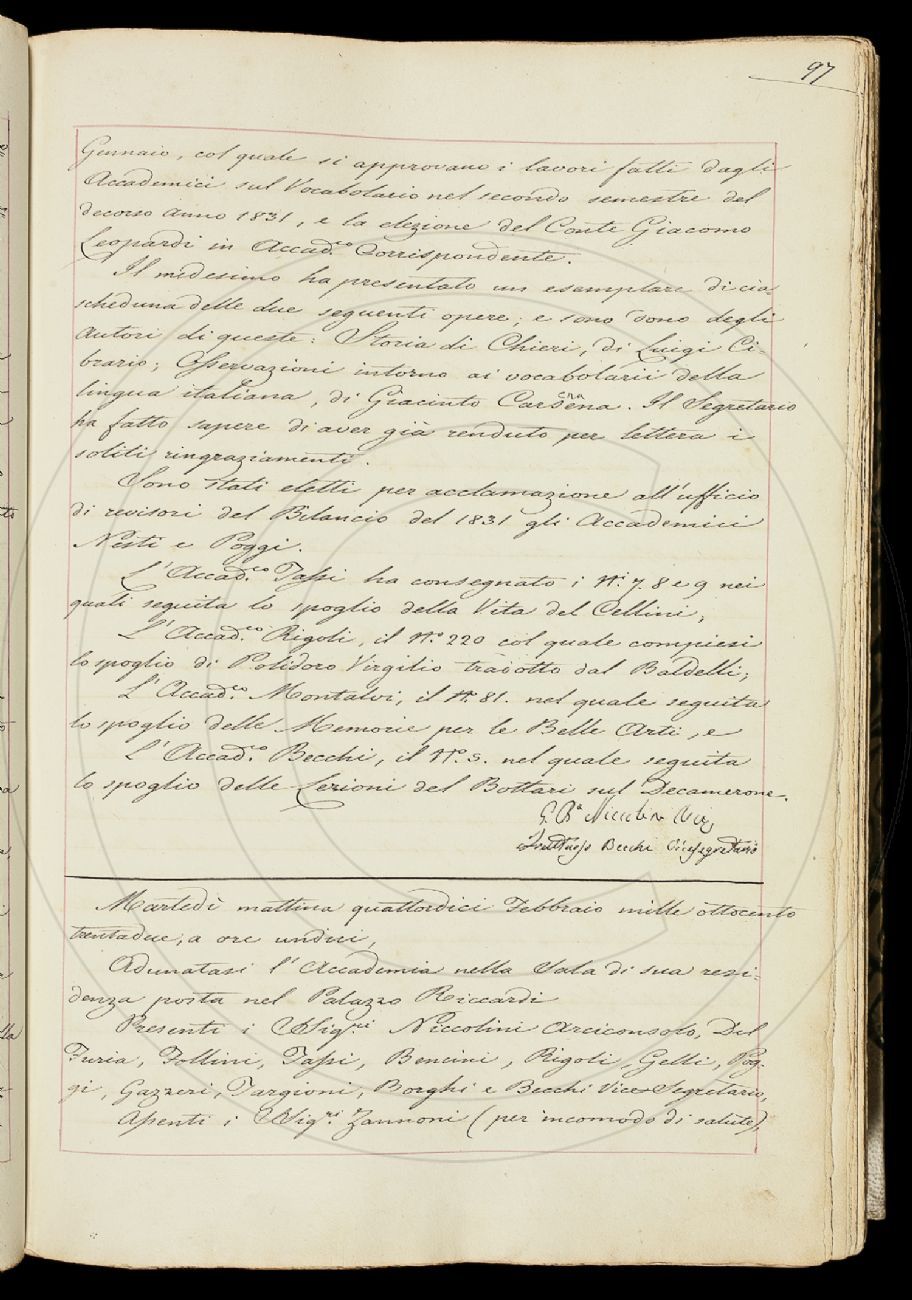 97
Gennaio, col quale si approvano i lavori fatti dagli
Accademici sul Vocabolario nel secondo semestre del
decorso anno 1831, e la elezione del Conte Giacomo
Leopardi in Accad.co Corrispondente.
Il medesimo ha presentato un esemplare di cia-
scheduna delle due seguenti opere; e sono dono degli
autori di queste: Storia di Chieri, di Luigi Ci-
brario; Osservazioni intorno ai vocabolarii della
lingua italiana, di Giacinto Carbena. Il Segretario
ha fatto sapere di aver già renduto per lettera i
soliti ringraziamenti.
Sono stati eletti per acclamazione all'ufficio
di revisori del Bilancio del 1831 gli Accademici
Nesti e Poggi.
L'Accad.co Tassi ha consegnato i N.i 7. 8 e 9 nei
quali seguita lo spoglio della Vita del Cellini;
L'Accad.co Rigoli, il N.o 220 col quale compiesi
lo spoglio di Polidoro Virgilio tradotto dal Baldelli;
L'Accad.co Montalvi, il N. 81. nel quale seguita
lo spoglio delle Memorie per le Belle Arti, e
L'Accad.co Becchi, il N.o 5. nel quale seguita
lo spoglio delle Lezioni del Bottari sul Decamerone.
G. B.a Niccolini
Fruttuoso Becchi Vicesegretario
Martedì mattina quattordici Febbraio mille ottocento
trentadue, a ore undici,
Adunatasi l'Accademia nella Sala di sua resi-
denza posta nel Palazzo Riccardi
Presenti i SSig.ri Niccolini Arciconsolo, Del
Furia, Follini, Tassi, Bencini, Rigoli, Gelli, Pog-
gi, Gazzeri, Targioni, Borghi e Becchi Vice-Segretario,
Assenti i SSig.ri Zannoni (per incomodo di salute),